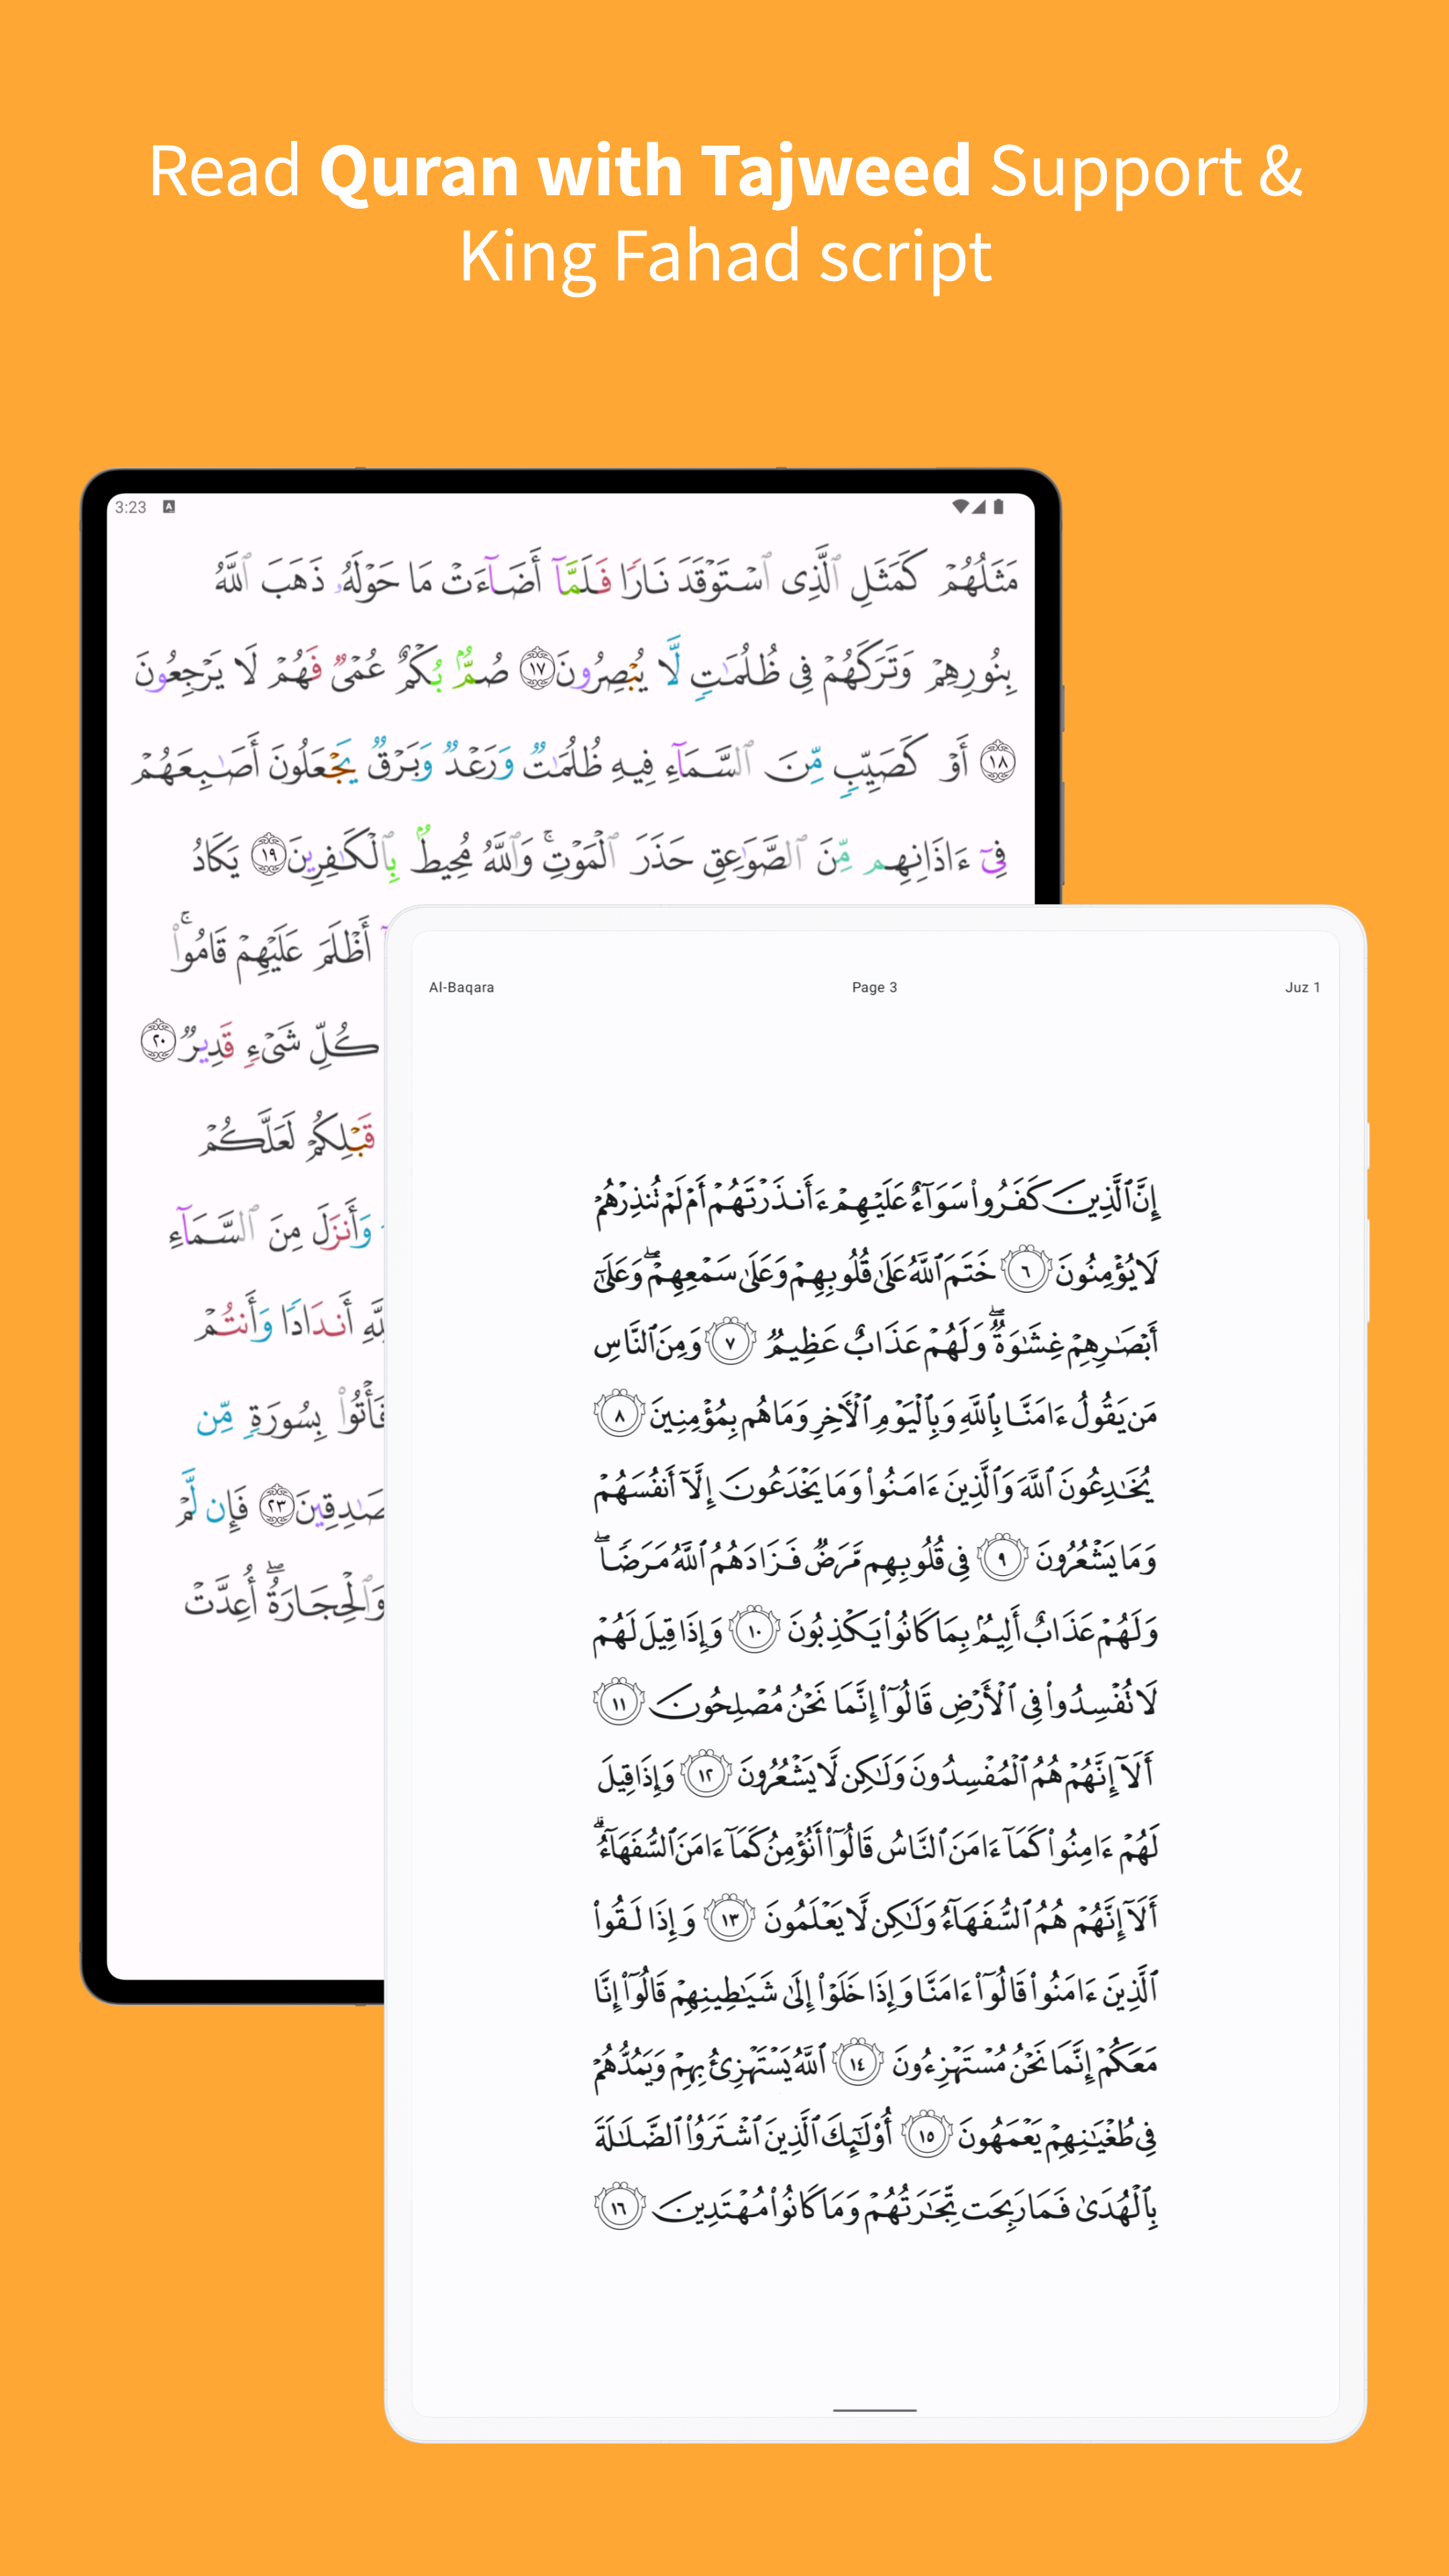 Read Quran with Tajweed Support &
King Fahad script
3:23
مَثَلُهُمْ كَمَثَلِ ٱلَّذِى ٱسْتَوْقَدَ نَارًا فَلَمَّآ أَضَآءَتْ مَا حَوْلَهُۥ ذَهَبَ ٱللَّهُ
بِنُورِهِمْ وَتَرَكَهُمْ فِى ظُلُمَٰتٍ لَّا يُبْصِرُونَ ١٧ صُمٌّۢ بُكْمٌ عُمْىٌ فَهُمْ لَا يَرْجِعُونَ
١٨ أَوْ كَصَيِّبٍ مِّنَ ٱلسَّمَآءِ فِيهِ ظُلُمَٰتٌ وَرَعْدٌ وَبَرْقٌ يَجْعَلُونَ أَصَٰبِعَهُمْ
فِىٓ ءَاذَانِهِم مِّنَ ٱلصَّوَٰعِقِ حَذَرَ ٱلْمَوْتِ ۚ وَٱللَّهُ مُحِيطٌۢ بِٱلْكَٰفِرِينَ ١٩ يَكَادُ
أَظْلَمَ عَلَيْهِمْ قَامُوا۟ ۚ
كُلِّ شَىْءٍ قَدِيرٌ ٢٠
قَبْلِكُمْ لَعَلَّكُمْ
وَأَنزَلَ مِنَ ٱلسَّمَآءِ
أَندَادًا وَأَنتُمْ
فَأْتُوا۟ بِسُورَةٍ مِّن
صَٰدِقِينَ ٢٣ فَإِن لَّمْ
وَٱلْحِجَارَةُ ۖ أُعِدَّتْ
Al-Baqara Page 3 Juz 1
إِنَّ ٱلَّذِينَ كَفَرُوا۟ سَوَآءٌ عَلَيْهِمْ ءَأَنذَرْتَهُمْ أَمْ لَمْ تُنذِرْهُمْ
لَا يُؤْمِنُونَ ٦ خَتَمَ ٱللَّهُ عَلَىٰ قُلُوبِهِمْ وَعَلَىٰ سَمْعِهِمْ ۖ وَعَلَىٰٓ
أَبْصَٰرِهِمْ غِشَٰوَةٌ ۖ وَلَهُمْ عَذَابٌ عَظِيمٌ ٧ وَمِنَ ٱلنَّاسِ
مَن يَقُولُ ءَامَنَّا بِٱللَّهِ وَبِٱلْيَوْمِ ٱلْءَاخِرِ وَمَا هُم بِمُؤْمِنِينَ ٨
يُخَٰدِعُونَ ٱللَّهَ وَٱلَّذِينَ ءَامَنُوا۟ وَمَا يَخْدَعُونَ إِلَّآ أَنفُسَهُمْ
وَمَا يَشْعُرُونَ ٩ فِى قُلُوبِهِم مَّرَضٌ فَزَادَهُمُ ٱللَّهُ مَرَضًا ۖ
وَلَهُمْ عَذَابٌ أَلِيمٌۢ بِمَا كَانُوا۟ يَكْذِبُونَ ١٠ وَإِذَا قِيلَ لَهُمْ
لَا تُفْسِدُوا۟ فِى ٱلْأَرْضِ قَالُوٓا۟ إِنَّمَا نَحْنُ مُصْلِحُونَ ١١
أَلَآ إِنَّهُمْ هُمُ ٱلْمُفْسِدُونَ وَلَٰكِن لَّا يَشْعُرُونَ ١٢ وَإِذَا قِيلَ
لَهُمْ ءَامِنُوا۟ كَمَآ ءَامَنَ ٱلنَّاسُ قَالُوٓا۟ أَنُؤْمِنُ كَمَآ ءَامَنَ ٱلسُّفَهَآءُ ۗ
أَلَآ إِنَّهُمْ هُمُ ٱلسُّفَهَآءُ وَلَٰكِن لَّا يَعْلَمُونَ ١٣ وَإِذَا لَقُوا۟
ٱلَّذِينَ ءَامَنُوا۟ قَالُوٓا۟ ءَامَنَّا وَإِذَا خَلَوْا۟ إِلَىٰ شَيَٰطِينِهِمْ قَالُوٓا۟ إِنَّا
مَعَكُمْ إِنَّمَا نَحْنُ مُسْتَهْزِءُونَ ١٤ ٱللَّهُ يَسْتَهْزِئُ بِهِمْ وَيَمُدُّهُمْ
فِى طُغْيَٰنِهِمْ يَعْمَهُونَ ١٥ أُو۟لَٰٓئِكَ ٱلَّذِينَ ٱشْتَرَوُا۟ ٱلضَّلَٰلَةَ
بِٱلْهُدَىٰ فَمَا رَبِحَت تِّجَٰرَتُهُمْ وَمَا كَانُوا۟ مُهْتَدِينَ ١٦